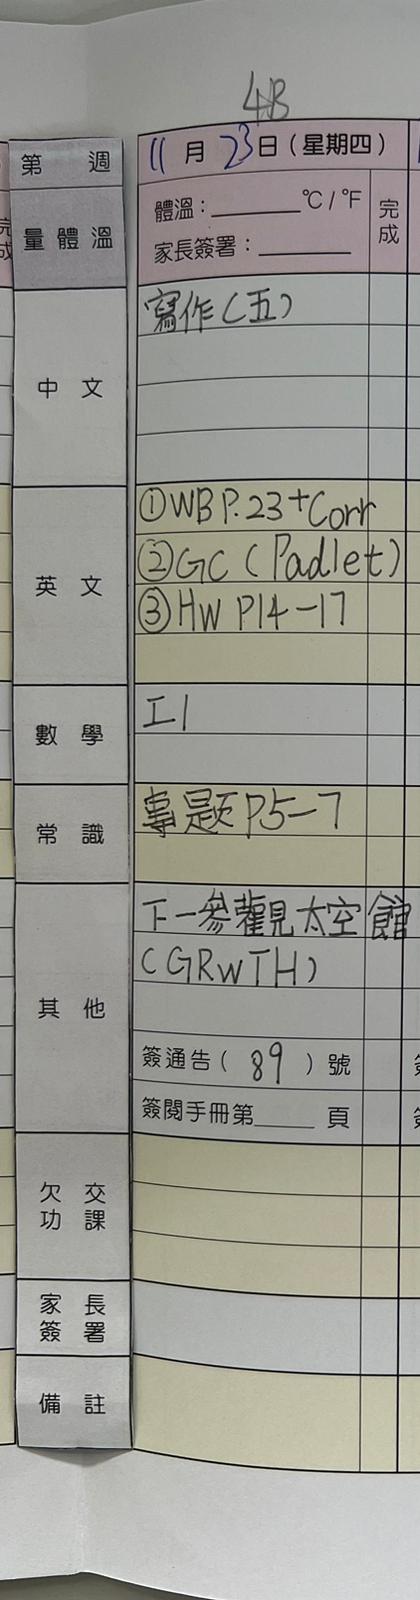 4B
第 週
11月23日(星期四)
量體溫
體溫：______°C/°F
完成
家長簽署：______
中文
寫作(五)
英文
①WB P.23+Corr
②GC (Padlet)
③HW P14-17
數學
工1
常識
專題P5-7
其他
下一參觀太空館
(GRWTH)
簽通告( 89 )號
簽閱手冊第____頁
欠交功課
家長簽署
備註